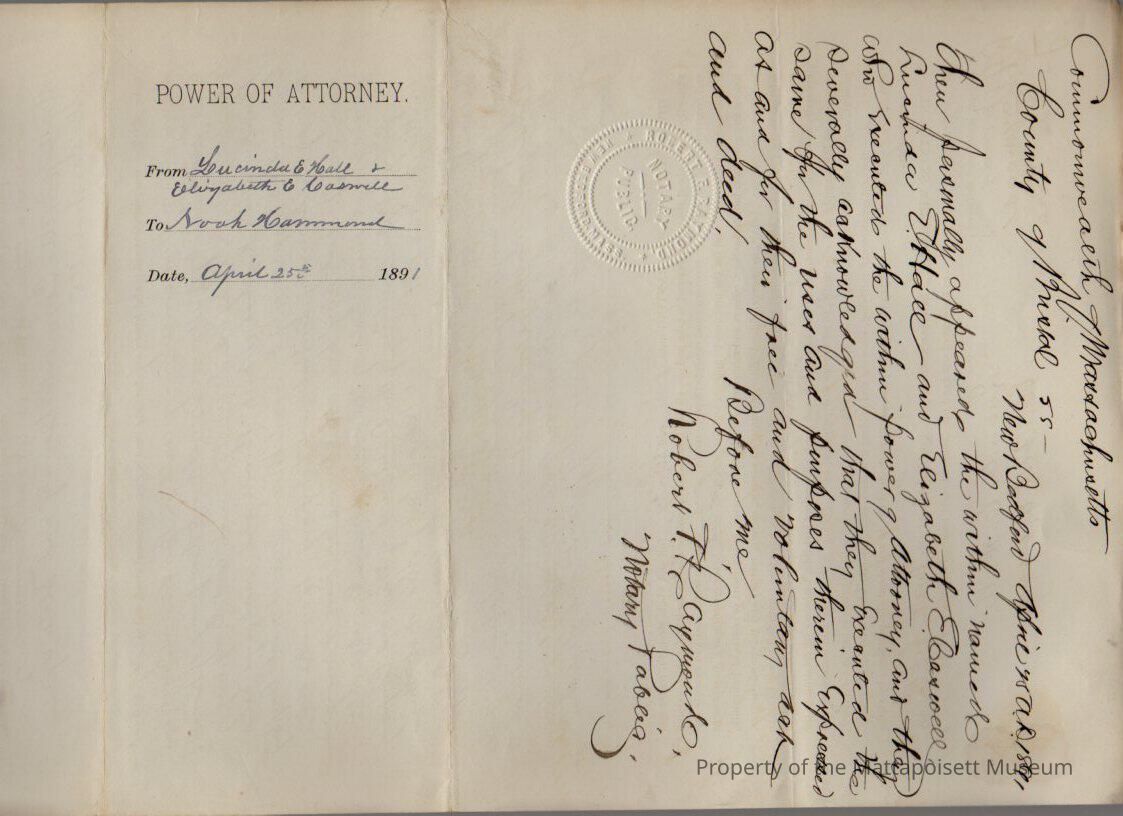 POWER OF ATTORNEY.
From Lucinda E Hall &
Elizabeth E Caswell
To Noah Hammond
Date, April 25th 1891
Commonwealth of Massachusetts
County of Bristol SS— New Bedford April 25 A.D. 1891,
Then personally appeared the within named
Lucinda E. Hall and Elizabeth E. Caswell
who executed the within power of Attorney, and they
severally acknowledged that they executed the
same for the uses and purposes therein Expressed
as and for their free and voluntary act
and deed.
Before me
Robert F. Raymond,
Notary Public,
ROBERT F. RAYMOND
NOTARY
PUBLIC
NEW BEDFORD MASS
Property of the Mattapoisett Museum